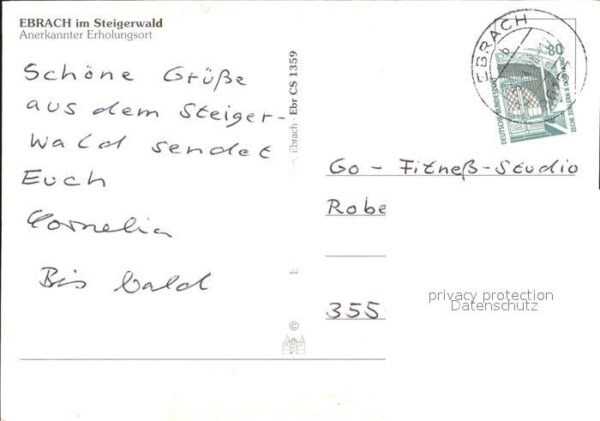 EBRACH im Steigerwald
Anerkannter Erholungsort
Schöne Grüße
aus dem Steiger-
wald sendet
Euch
Cornelia
Bis bald
Ebrach · Ebr CS 1359
©
EBRACH
b
80
DEUTSCHE BUNDESPOST
ZECHE ZOLLERN II DORTMUND
Go - Fitneß-Studio
Robe
355
privacy protection
Datenschutz